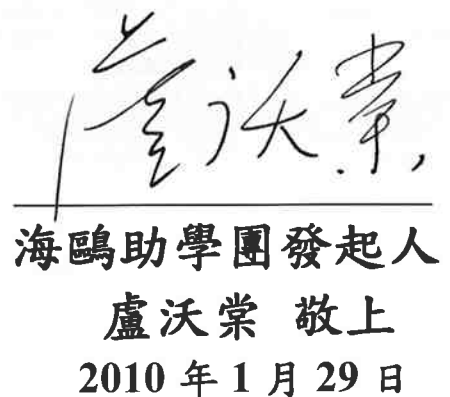 盧沃棠
海鷗助學團發起人
盧沃棠 敬上
2010 年 1 月 29 日